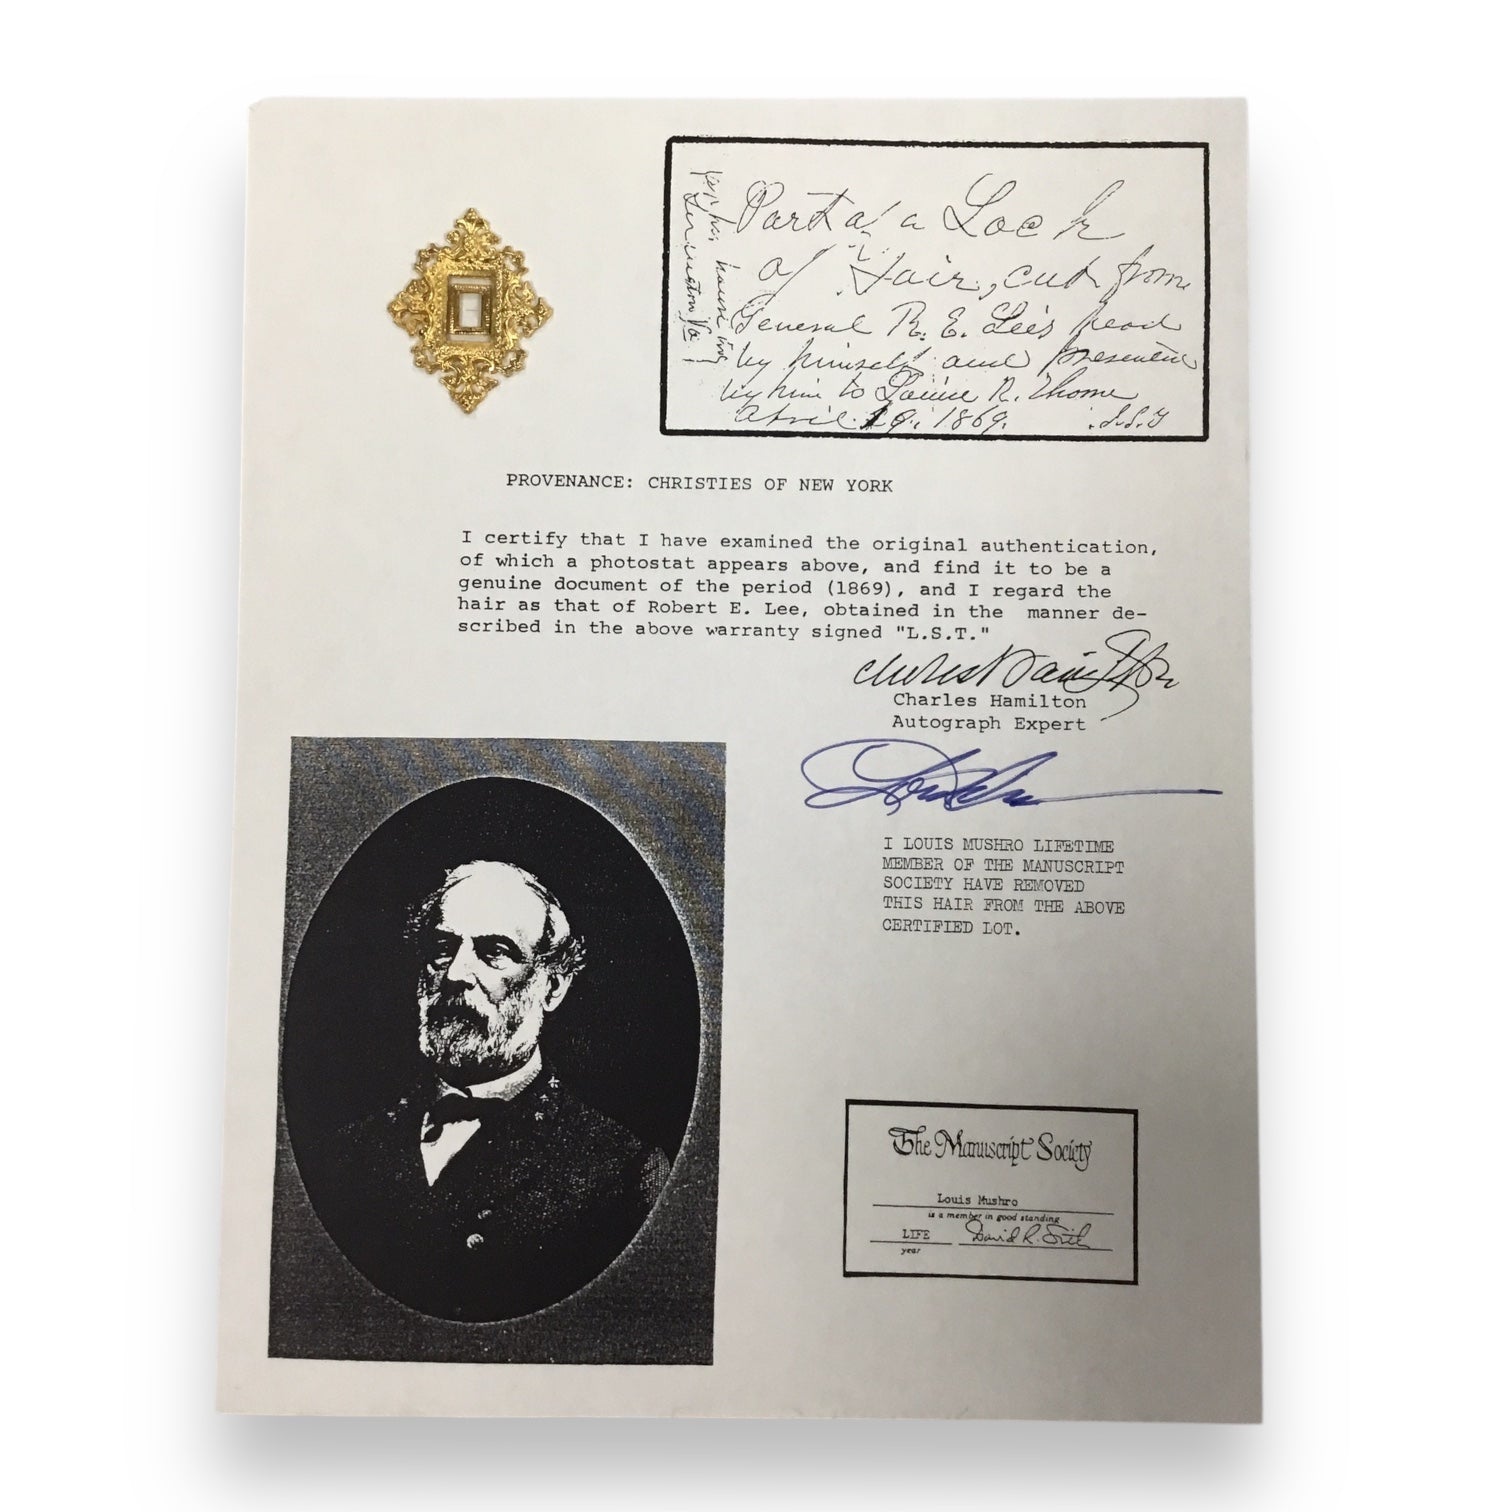 Part of a Lock
of Hair, cut from
General R. E. Lee's head
by himself and presented
by him to Louise R. Thome
April 19, 1869. L.S.T
house
Lexington Va
PROVENANCE: CHRISTIES OF NEW YORK
I certify that I have examined the original authentication,
of which a photostat appears above, and find it to be a
genuine document of the period (1869), and I regard the
hair as that of Robert E. Lee, obtained in the manner de-
scribed in the above warranty signed "L.S.T."
Charles Hamilton
Charles Hamilton
Autograph Expert
I LOUIS MUSHRO LIFETIME
MEMBER OF THE MANUSCRIPT
SOCIETY HAVE REMOVED
THIS HAIR FROM THE ABOVE
CERTIFIED LOT.
The Manuscript Society
Louis Mushro
is a member in good standing
LIFE David R. Smith
year